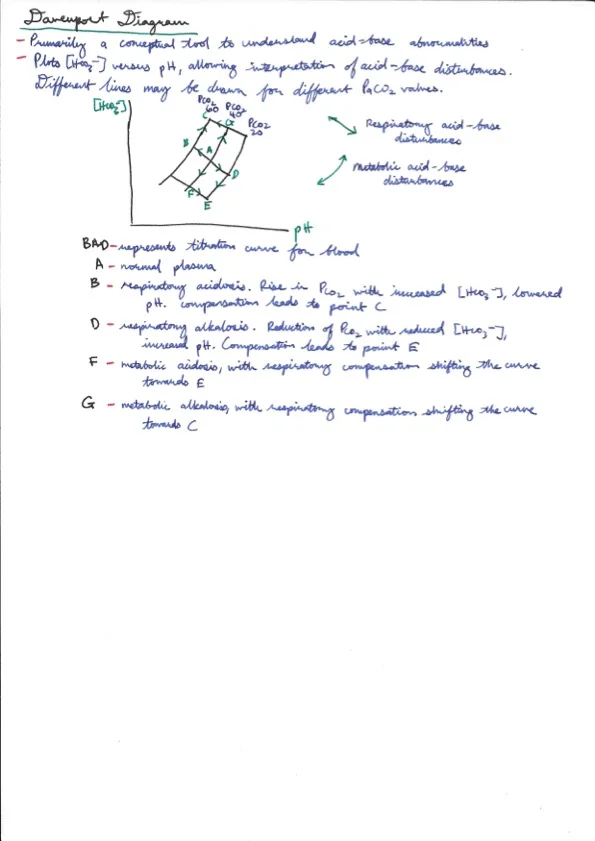 Davenport Diagram
- Primarily a conceptual tool to understand acid-base abnormalities
- Plots [HCO3-] versus pH, allowing interpretation of acid-base disturbances.
Different lines may be drawn for different PaCO2 values.
[HCO3-]
PCO2 60
PCO2 40
PCO2 20
C
G
B
A
D
F
E
pH
Respiratory acid-base
disturbances
metabolic acid-base
disturbances
BAD - represents titration curve for blood
A - normal plasma
B - respiratory acidosis. Rise in PCO2 with increased [HCO3-], lowered
pH. compensation leads to point C
D - respiratory alkalosis. Reduction of PCO2 with reduced [HCO3-],
increased pH. Compensation leads to point E
F - metabolic acidosis, with respiratory compensation shifting the curve
towards E
G - metabolic alkalosis, with respiratory compensation shifting the curve
towards C